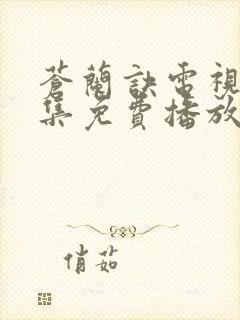 蒼蘭訣電視
集免費播放
俏茹